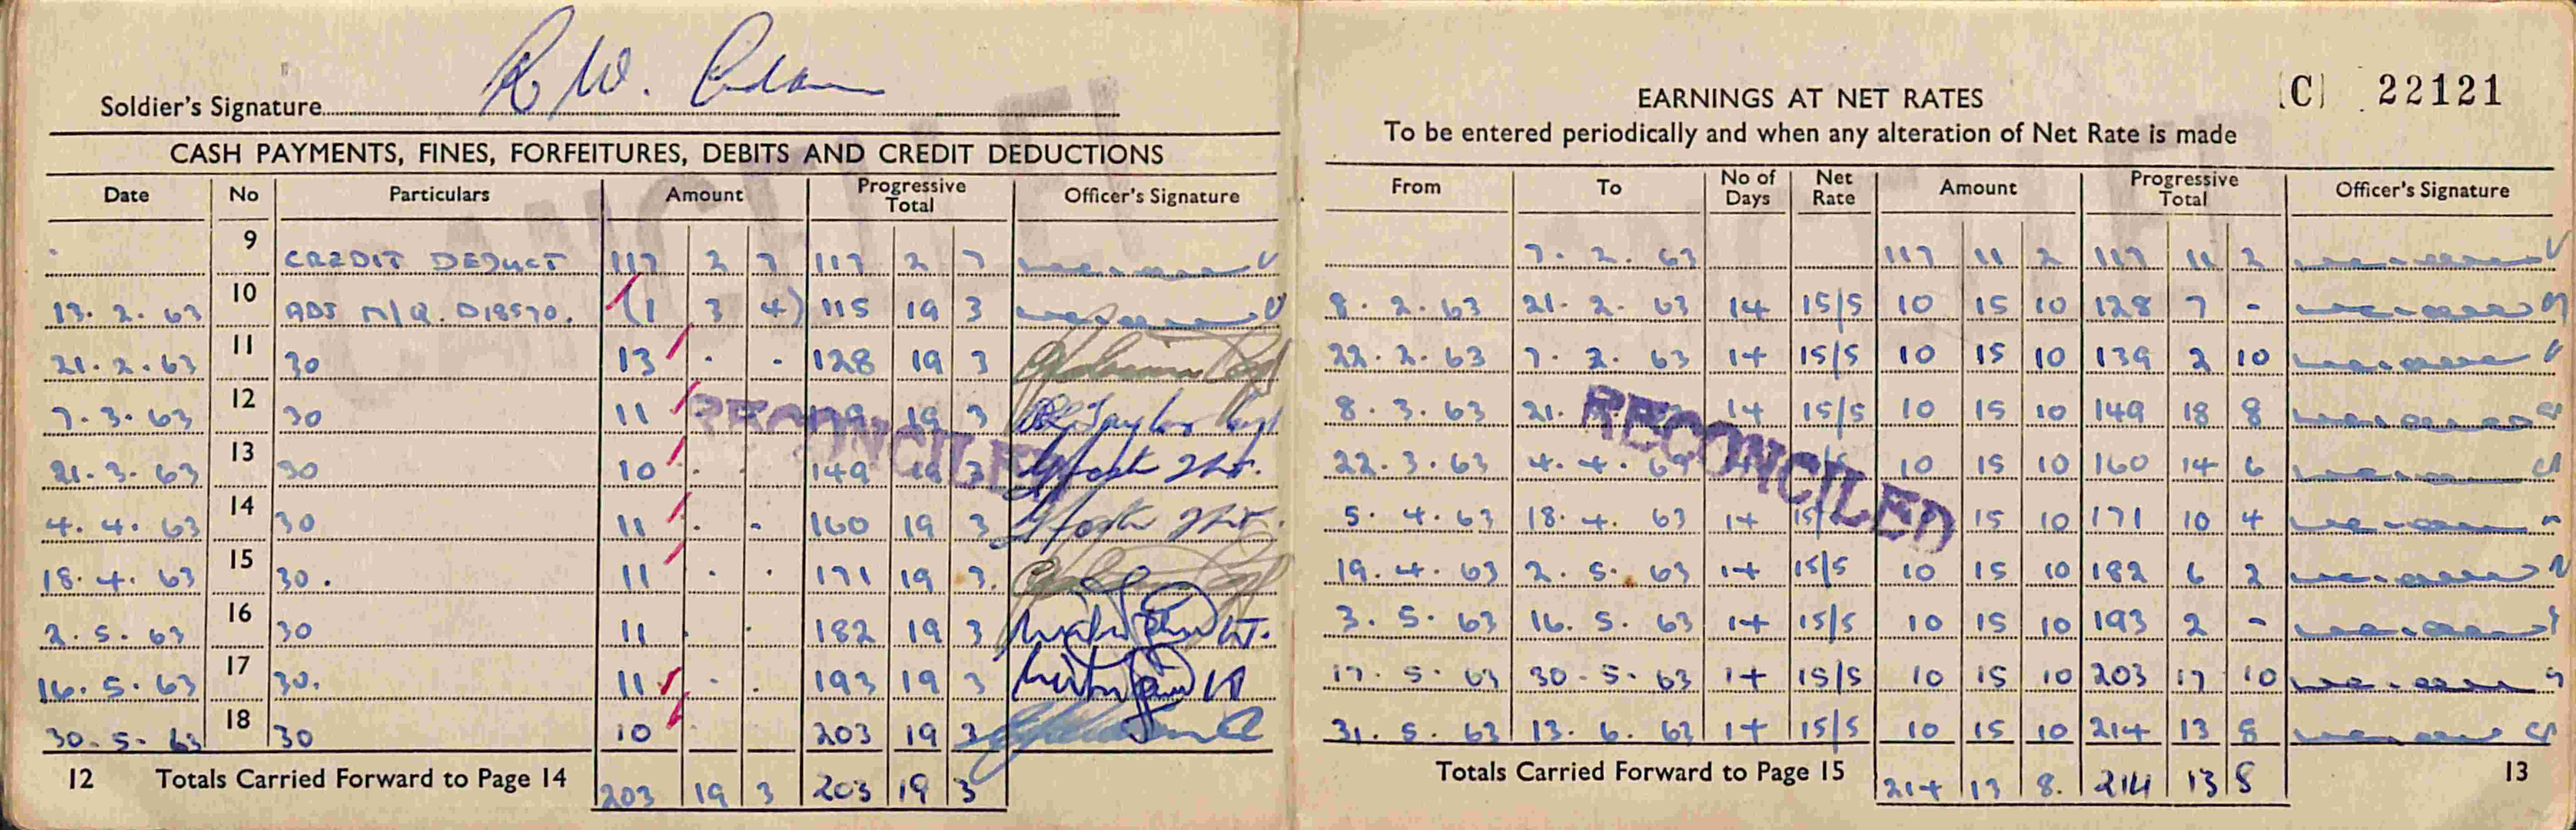 Soldier's Signature R W.
CASH PAYMENTS, FINES, FORFEITURES, DEBITS AND CREDIT DEDUCTIONS
Date No Particulars Amount Progressive Total Officer's Signature
9 CREDIT DEDUCT 117 2 7 117 2 7
13. 2. 63 10 ADJ M/Q. D18570. (1 3 4) 115 19 3
21. 2. 63 11 30 13 . - 128 19 3
7. 3. 63 12 30 11 19 3
21. 3. 63 13 30 10 . . 149 19 3
4. 4. 63 14 30 11 . - 160 19 3
18. 4. 63 15 30. 11 . . 171 19 3.
2. 5. 63 16 30 11 . . 182 19 3
16. 5. 63 17 30. 11 . . 193 19 3
30. 5. 63 18 30 10 . 203 19 3
RECONCILED
CANCELLED
12 Totals Carried Forward to Page 14 203 19 3 203 19 3
(C) 22121
EARNINGS AT NET RATES
To be entered periodically and when any alteration of Net Rate is made
From To No of Days Net Rate Amount Progressive Total Officer's Signature
7. 2. 63 117 11 2 117 11 2
8. 2. 63 21. 2. 63 14 15/5 10 15 10 128 7 -
22. 2. 63 7. 2. 63 14 15/5 10 15 10 139 2 10
8. 3. 63 21. 14 15/5 10 15 10 149 18 8
22. 3. 63 4. 4. 63 10 15 10 160 14 6
5. 4. 63 18. 4. 63 14 15/ 15 10 171 10 4
19. 4. 63 2. 5. 63 14 15/5 10 15 10 182 6 2
3. 5. 63 16. 5. 63 14 15/5 10 15 10 193 2 -
17. 5. 63 30. 5. 63 14 15/5 10 15 10 203 17 10
31. 5. 63 13. 6. 63 14 15/5 10 15 10 214 13 8
RECONCILED
Totals Carried Forward to Page 15 214 13 8. 214 13 8
13